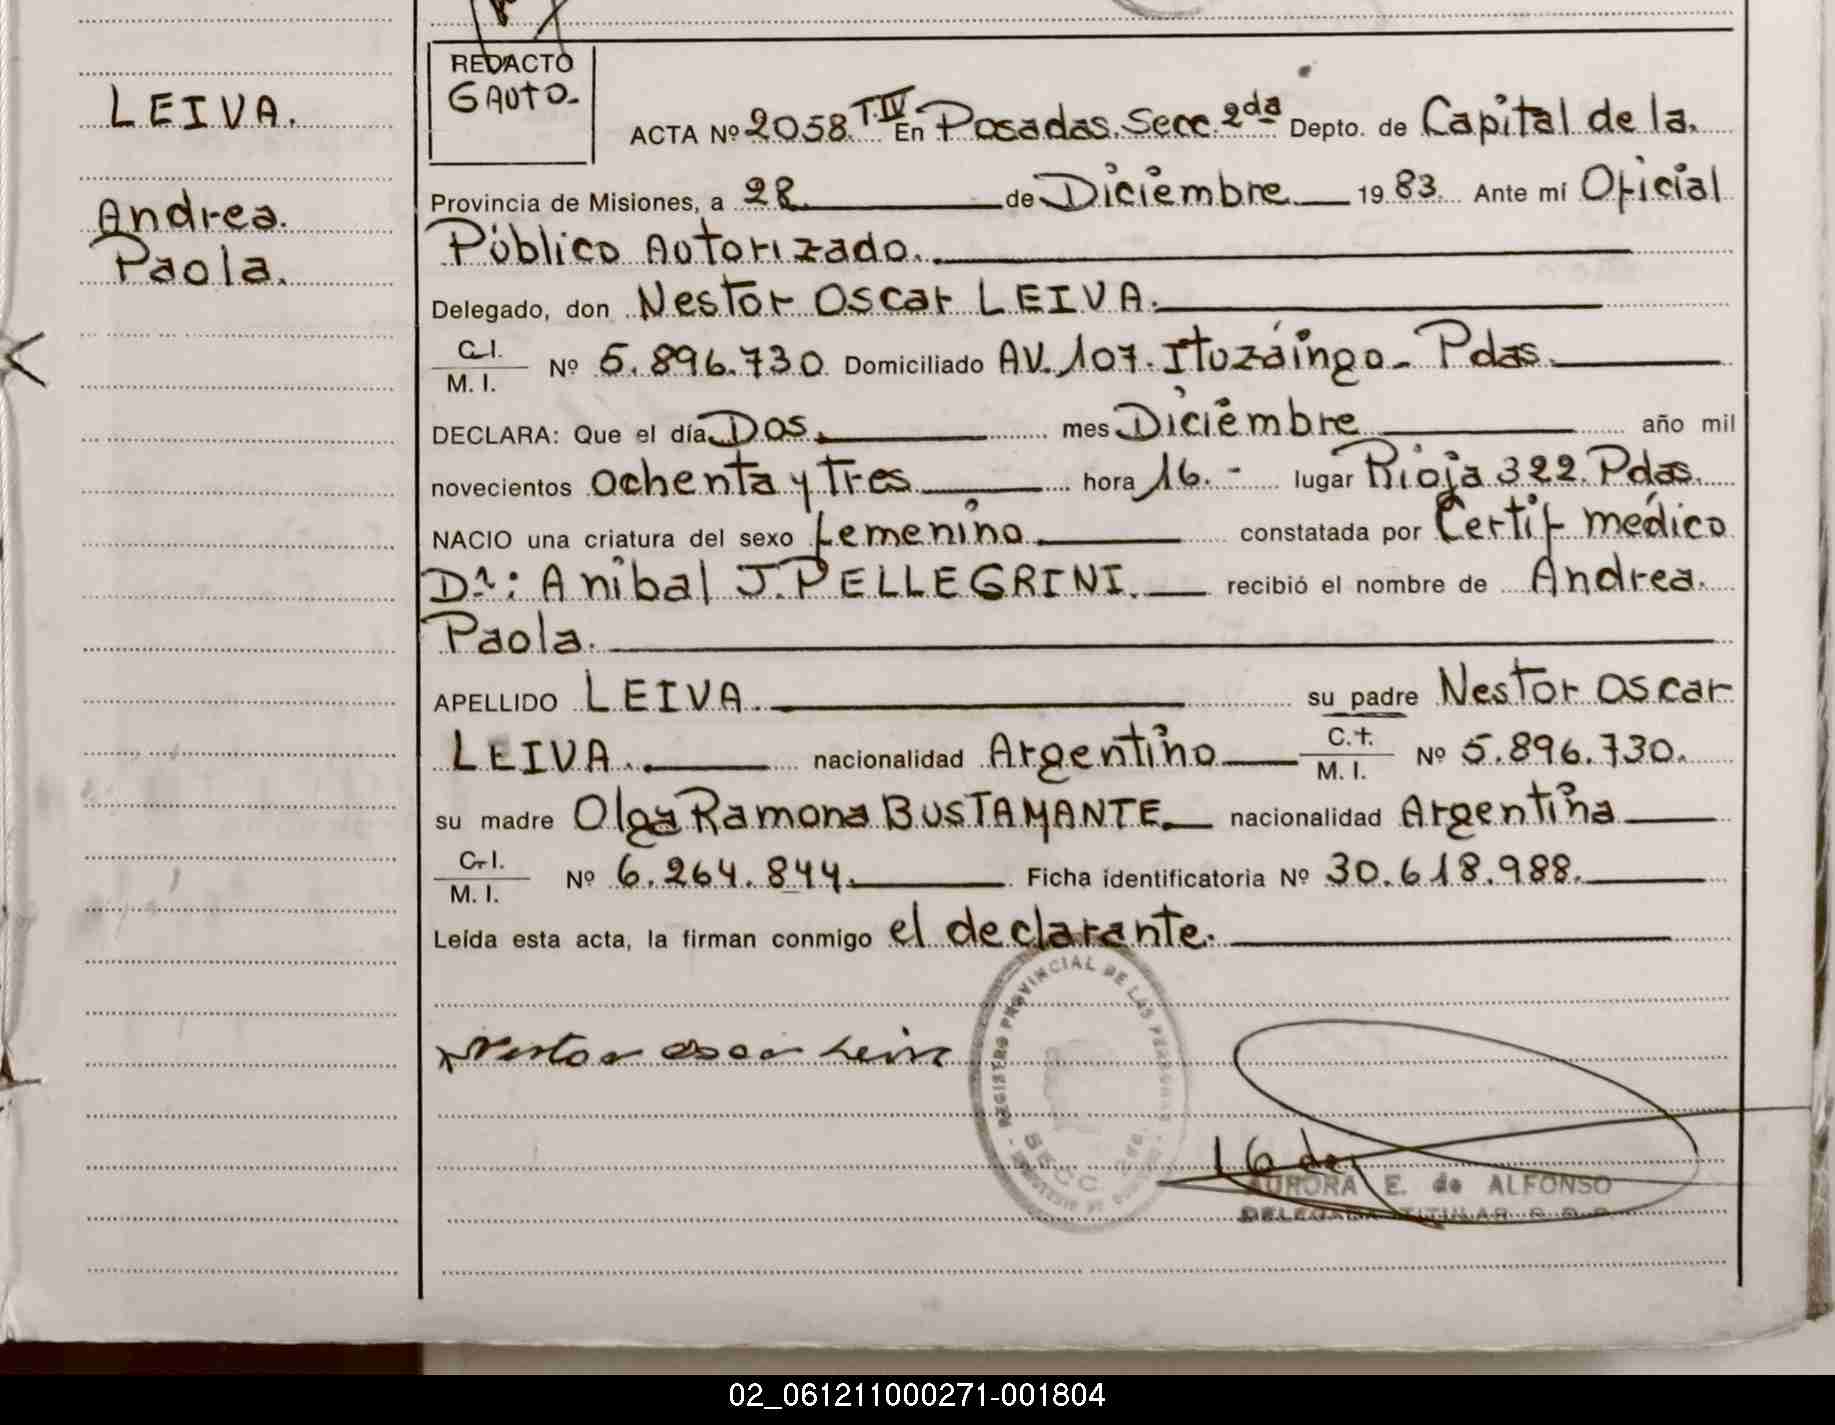 LEIVA.
Andrea.
Paola.
REDACTO
GAUTO-
ACTA Nº 2058 T.IV En Posadas. Secc. 2da Depto. de Capital de la.
Provincia de Misiones, a 28 de Diciembre 1983. Ante mí Oficial
Público Autorizado.
Delegado, don Nestor Oscar LEIVA.
C.I.
M. I. Nº 5.896.730 Domiciliado AV. 107. Ituzáingo - Pdas.
DECLARA: Que el día Dos. mes Diciembre año mil
novecientos ochenta y tres hora 16.- lugar Rioja 322. Pdas.
NACIO una criatura del sexo femenino constatada por Certif médico
Dr: Anibal J. PELLEGRINI. recibió el nombre de Andrea.
Paola.
APELLIDO LEIVA. su padre Nestor Oscar
LEIVA. nacionalidad Argentino C.I.
M. I. Nº 5.896.730.
su madre Olga Ramona BUSTAMANTE. nacionalidad Argentina
C.I.
M. I. Nº 6.264.844. Ficha identificatoria Nº 30.618.988.
Leída esta acta, la firman conmigo el declarante.
REGISTRO PROVINCIAL DE LAS PERSONAS
SECC. 2da.
Nestor oscar Leiva
AURORA E. de ALFONSO
DELEGADA TITULAR
02_061211000271-001804